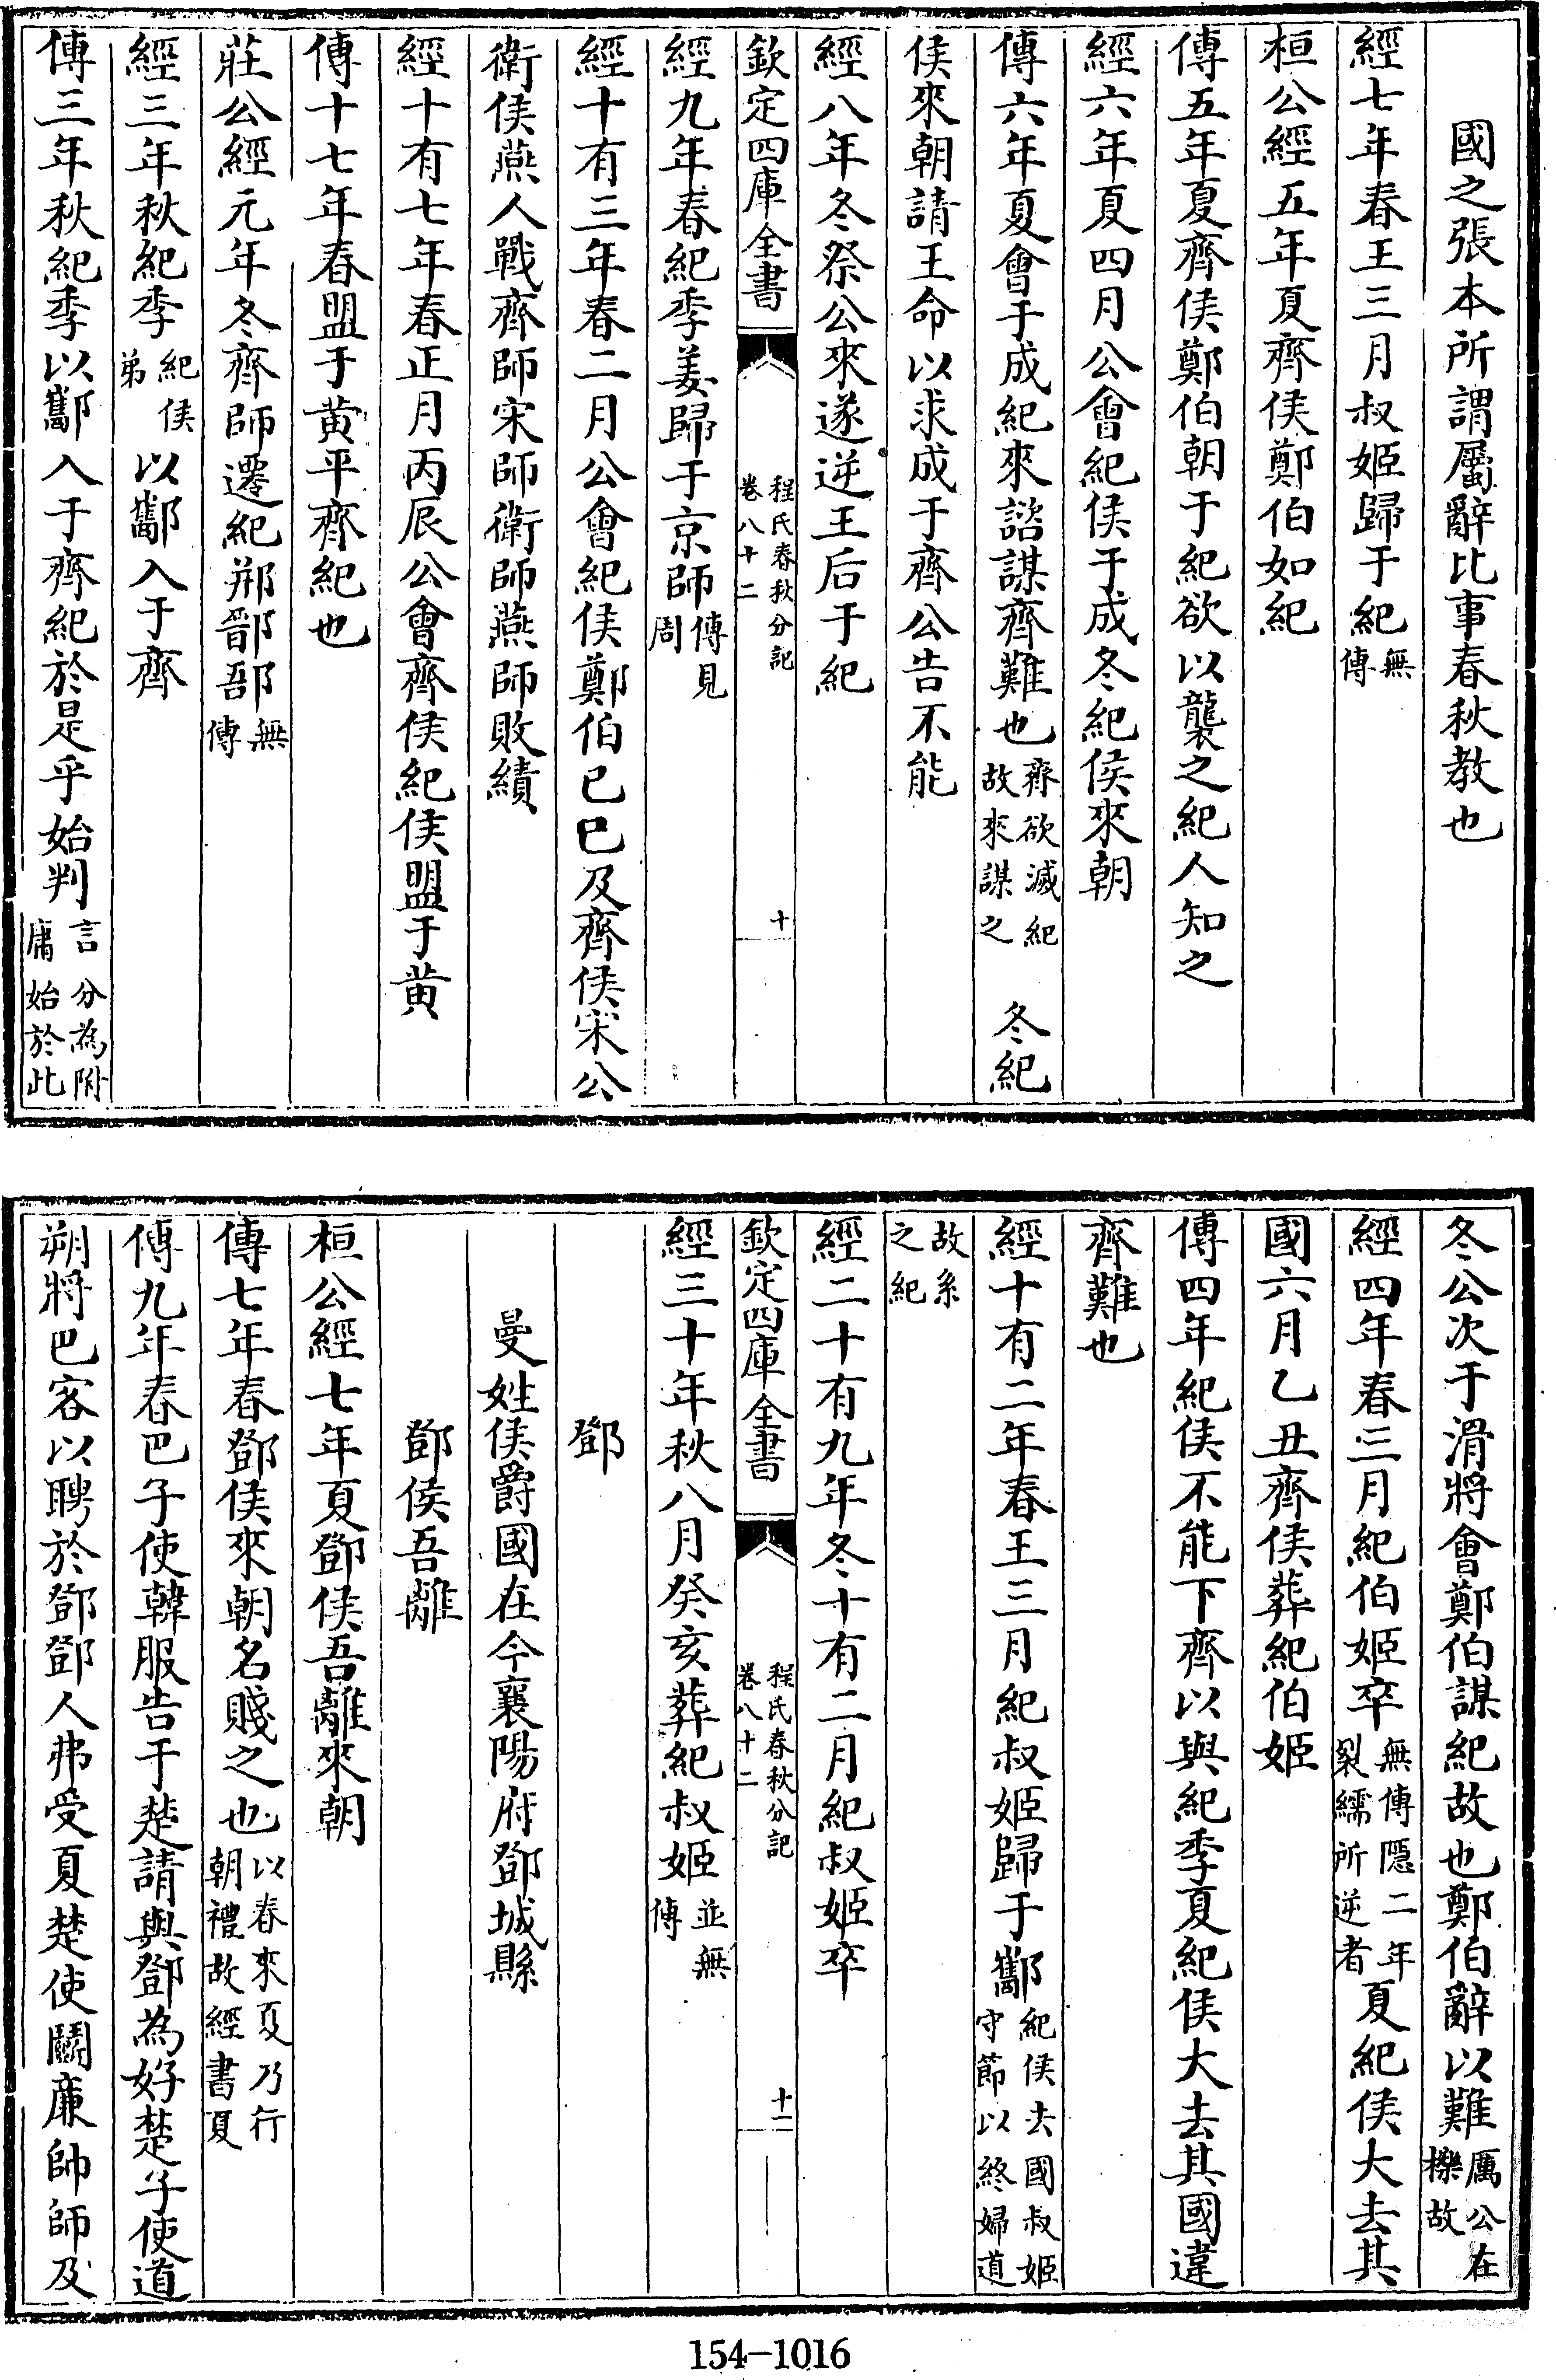 國之張本所謂屬辭比事春秋教也
經七年春王三月叔姬歸于紀無傳
桓公經五年夏齊侯鄭伯如紀
傳五年夏齊侯鄭伯朝于紀欲以襲之紀人知之
經六年夏四月公會紀侯于成冬紀侯來朝
傳六年夏會于成紀來諮謀齊難也齊欲滅紀故來謀之 冬紀
侯來朝請王命以求成于齊公告不能
經八年冬祭公來遂逆王后于紀
欽定四庫全書 程氏春秋分記卷八十二 十
經九年春紀季姜歸于京師傳見周
經十有三年春二月公會紀侯鄭伯己巳及齊侯宋公
衛侯燕人戰齊師宋師衛師燕師敗績
經十有七年春正月丙辰公會齊侯紀侯盟于黄
傳十七年春盟于黄平齊紀也
莊公經元年冬齊師遷紀郱鄑郚無傳
經三年秋紀季紀侯弟以酅入于齊
傳三年秋紀季以酅入于齊紀於是乎始判言分為附庸始於此
冬公次于滑將會鄭伯謀紀故也鄭伯辭以難厲公在櫟故
經四年春三月紀伯姬卒無傳隱二年裂繻所逆者夏紀侯大去其
國六月乙丑齊侯葬紀伯姬
傳四年紀侯不能下齊以與紀季夏紀侯大去其國違
齊難也
經十有二年春王三月紀叔姬歸于酅紀侯去國叔姬守節以終婦道
故系之紀
經二十有九年冬十有二月紀叔姬卒
欽定四庫全書 程氏春秋分記卷八十二 十一
經三十年秋八月癸亥葬紀叔姬並無傳
鄧
曼姓侯爵國在今襄陽府鄧城縣
鄧侯吾離
桓公經七年夏鄧侯吾離來朝
傳七年春鄧侯來朝名賤之也以春來夏乃行朝禮故經書夏
傳九年春巴子使韓服告于楚請與鄧為好楚子使道
朔將巴客以聘於鄧鄧人弗受夏楚使鬭廉帥師及
154-1016